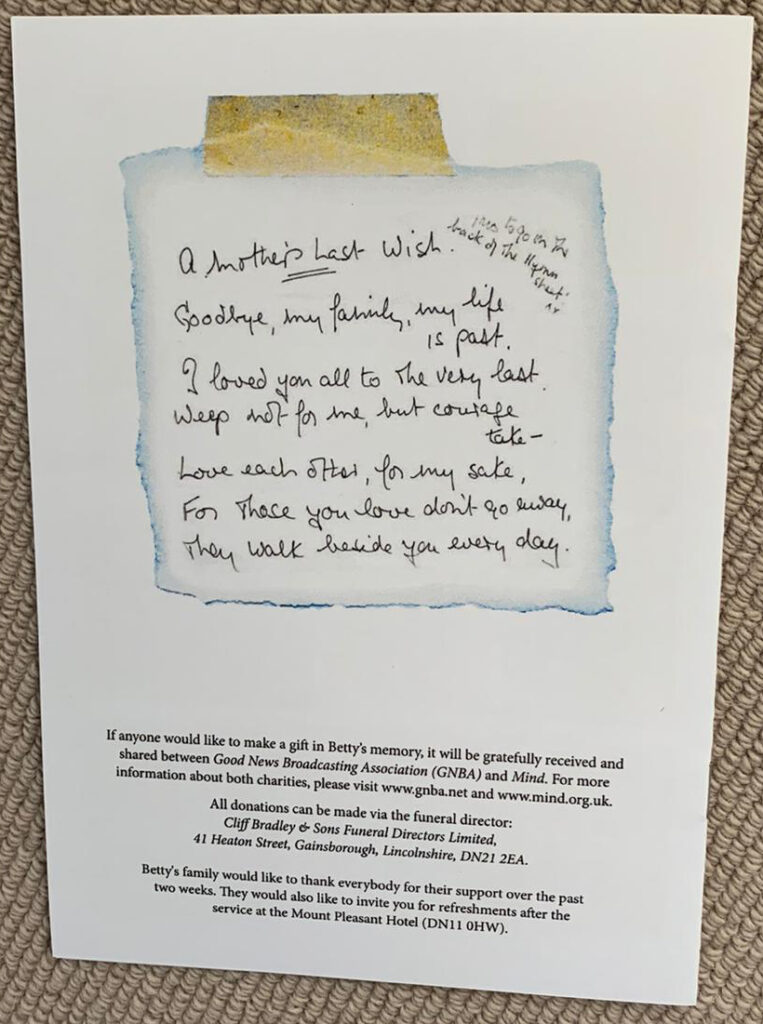 A Mother's Last Wish.
to go on The
back of The Hymn
sheet
Goodbye, my family, my life
is past.
I loved you all to The very last.
Weep not for me, but courage
take-
Love each other, for my sake,
For Those you love don't go away,
They walk beside you every day.
If anyone would like to make a gift in Betty's memory, it will be gratefully received and
shared between Good News Broadcasting Association (GNBA) and Mind. For more
information about both charities, please visit www.gnba.net and www.mind.org.uk.
All donations can be made via the funeral director:
Cliff Bradley & Sons Funeral Directors Limited,
41 Heaton Street, Gainsborough, Lincolnshire, DN21 2EA.
Betty's family would like to thank everybody for their support over the past
two weeks. They would also like to invite you for refreshments after the
service at the Mount Pleasant Hotel (DN11 0HW).